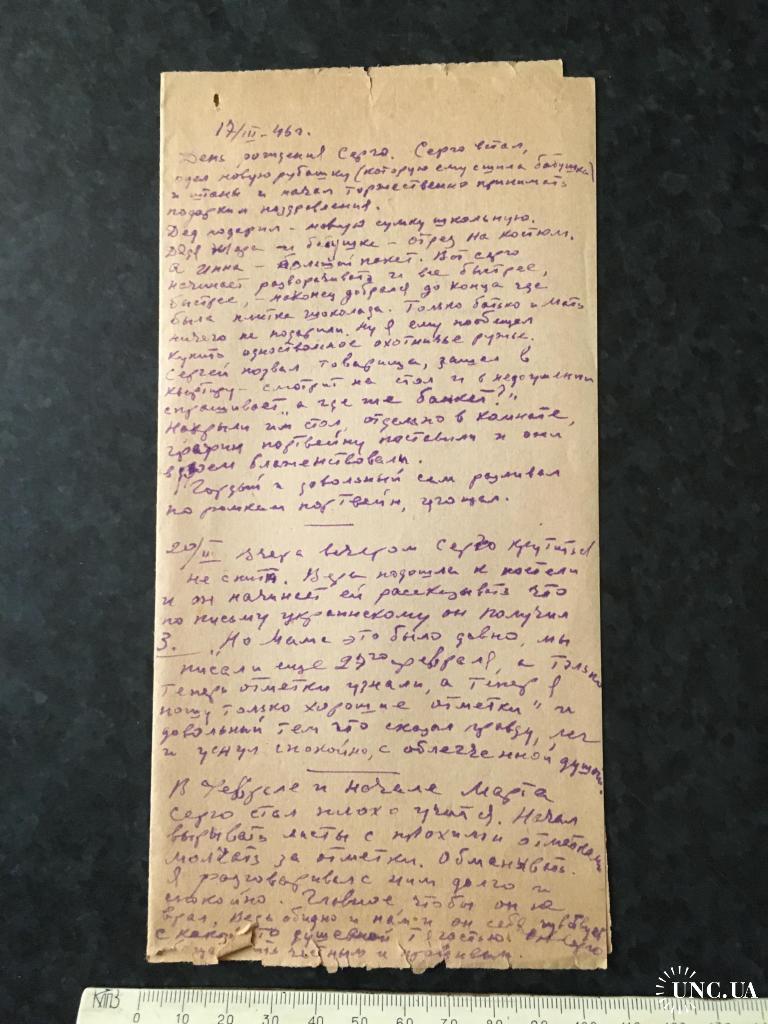 17/III-46г.
День рождения Серго. Серго встал,
одел новую рубашку (которую ему сшила бабушка)
и штаны и начал торжественно принимать
подарки поздравления.
Дед подарил – новую сумку школьную.
Дядя Жора и бабушка – отрез на костюм.
а Инна – большой пакет. Вот Серго
начинает разворачивать и все быстрее,
быстрее, – наконец добрался до конца где
была плитка шоколада. Только батько и мать
ничего не подарили. Ну я ему пообещал
купить одноствольное охотничье ружье.
Сергей позвал товарища, зашел в
квартиру – смотрит на стол и в недоумении
спрашивает „а где же банкет?"
Накрыли им стол, отдельно в комнате,
графин портвейну поставили и они
вдвоем блаженствовали.
Гордый и довольный сам разливал
по рюмкам портвейн, угощал.
20/II Вчера вечером Серго крутиться
не спить. Вера подошла к постели
и он начинает ей рассказывать что
по письму украинскому он получил
3. „Но мама это было давно, мы
писали еще 27го февраля, а только
теперь отметки узнали, а теперь я
ношу только хорошие отметки" и
довольный тем что сказал правду, лег
и уснул спокойно, с облегченной душой.
В феврале и начале Марта
Серго стал плохо учится. Начал
вырывать листы с плохими отметками
молчать за отметки. Обманывать.
Я разговаривал с ним долго и
спокойно. Главное чтобы он не
врал, ведь обидно и нам и он себя чувствует
с какой то душевной тягостью.
честным и правдивым.
КПЗ
0 10 20 30 40 50 60 70 80 90 100 110
UNC.UA